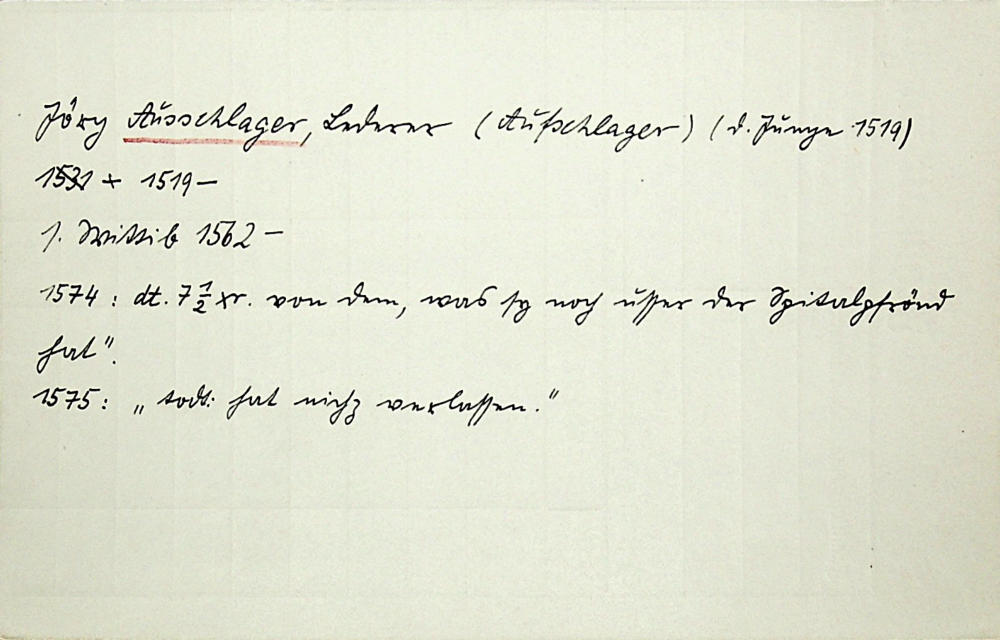 Jöry Ausschlager, Lederer (Aufschlager) (d. Junge 1519)
1531 + 1519 –
s. Wittib 1562 –
1574 : dt. 7 1/2 xr. von dem, was sy noch usser der Spitalpfrönd
hat".
1575 : „ todt: hat nichz verlassen."